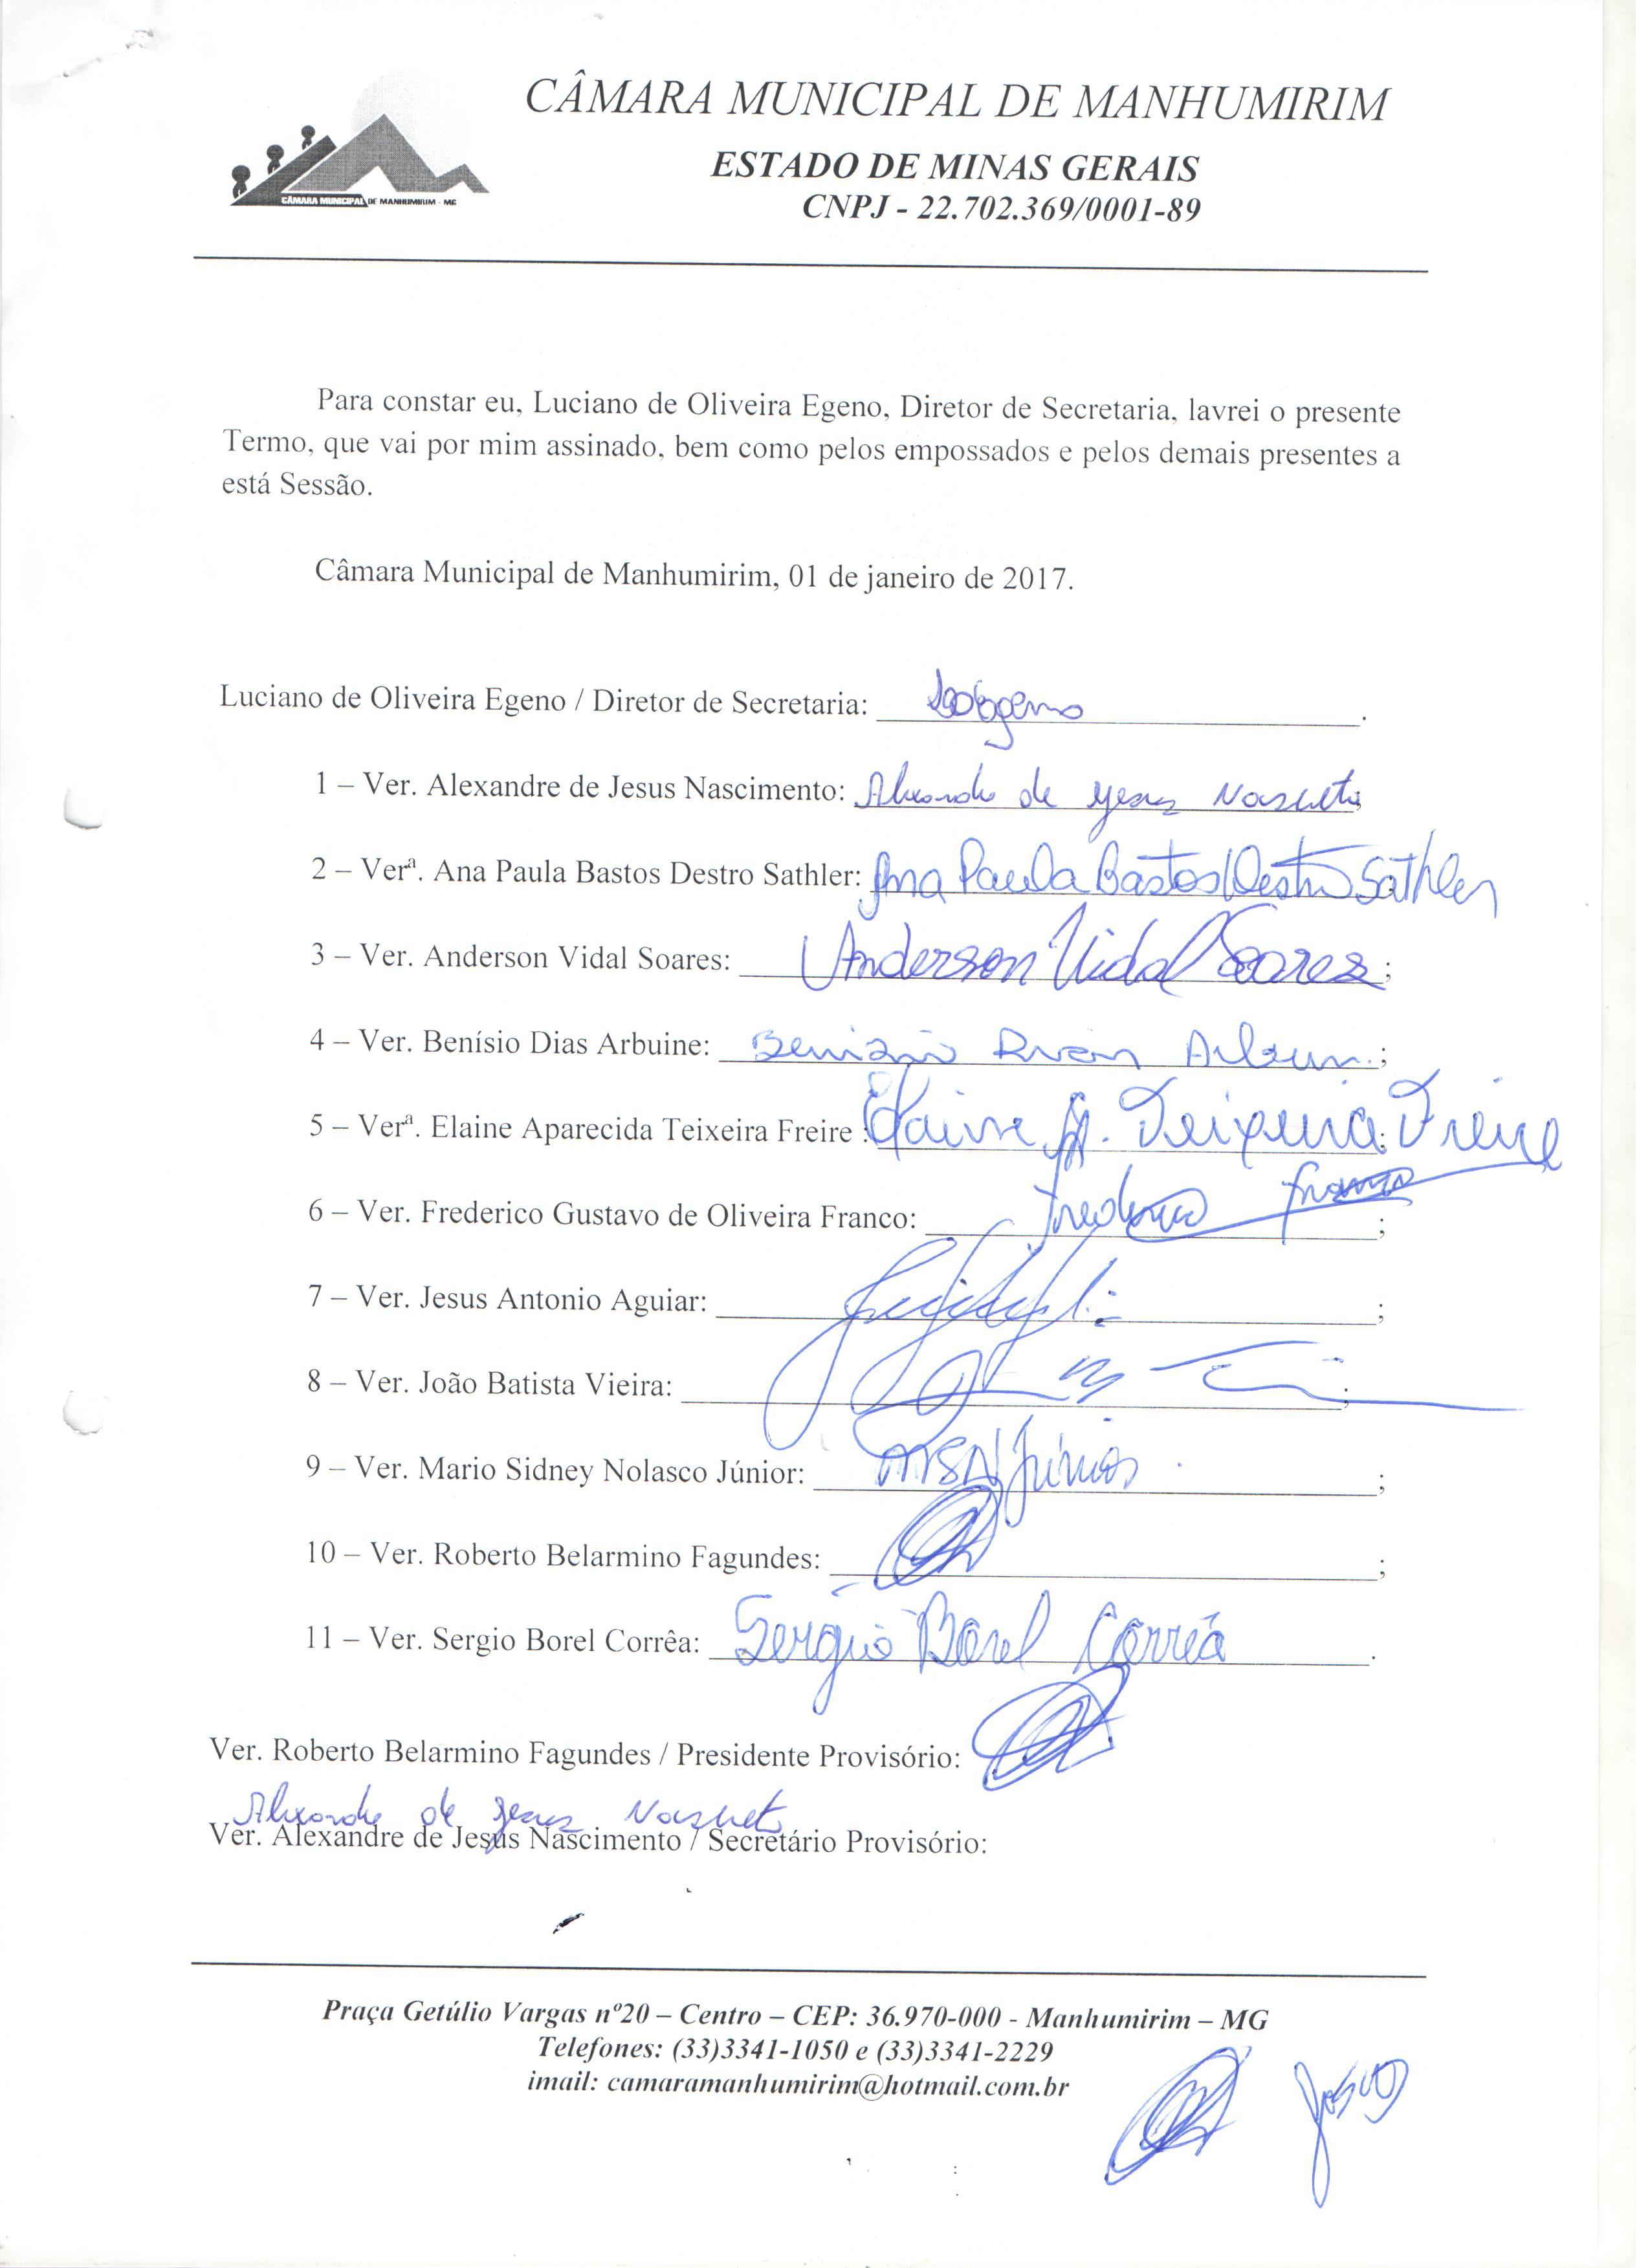 CÂMARA MUNICIPAL DE MANHUMIRIM
ESTADO DE MINAS GERAIS
CNPJ - 22.702.369/0001-89
CÂMARA MUNICIPAL DE MANHUMIRIM - MG
Para constar eu, Luciano de Oliveira Egeno, Diretor de Secretaria, lavrei o presente
Termo, que vai por mim assinado, bem como pelos empossados e pelos demais presentes a
está Sessão.
Câmara Municipal de Manhumirim, 01 de janeiro de 2017.
Luciano de Oliveira Egeno / Diretor de Secretaria: .
1 – Ver. Alexandre de Jesus Nascimento: Alexandre de Jesus
2 – Verª. Ana Paula Bastos Destro Sathler: Ana Paula Bastos Destro Sathler
3 – Ver. Anderson Vidal Soares: Anderson Vidal Soares;
4 – Ver. Benísio Dias Arbuine: Benisio Dias ;
5 – Verª. Elaine Aparecida Teixeira Freire : Elaine A. Teixeira Freire;
6 – Ver. Frederico Gustavo de Oliveira Franco: Frederico Franco;
7 – Ver. Jesus Antonio Aguiar: ;
8 – Ver. João Batista Vieira: ;
9 – Ver. Mario Sidney Nolasco Júnior: MSNJúnior;
10 – Ver. Roberto Belarmino Fagundes: ;
11 – Ver. Sergio Borel Corrêa: Sergio Borel Corrêa.
Ver. Roberto Belarmino Fagundes / Presidente Provisório:
Alexandre de Jesus
Ver. Alexandre de Jesus Nascimento / Secretário Provisório:
Praça Getúlio Vargas nº20 – Centro – CEP: 36.970-000 - Manhumirim – MG
Telefones: (33)3341-1050 e (33)3341-2229
imail: camaramanhumirim@hotmail.com.br